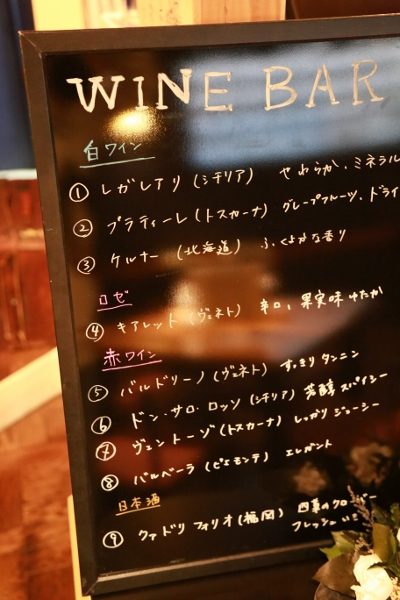 WINE BAR
白ワイン
① レガレアリ (シチリア) やわらか、ミネラル
② プラティーレ (トスカーナ) グレープフルーツ、ドライ
③ ケルナー (北海道) ふくよかな香り
ロゼ
④ キアレット (ヴェネト) 辛口、果実味ゆたか
赤ワイン
⑤ バルドリーノ (ヴェネト) すっきりタンニン
⑥ ドン・サロ・ロッソ (シチリア) 芳醇スパイシー
⑦ ヴェントーゾ (トスカーナ) しっかりジューシー
⑧ バルベーラ (ピエモンテ) エレガント
日本酒
⑨ クァドリフォリオ (福岡) 四葉のクローバー
フレッシュ